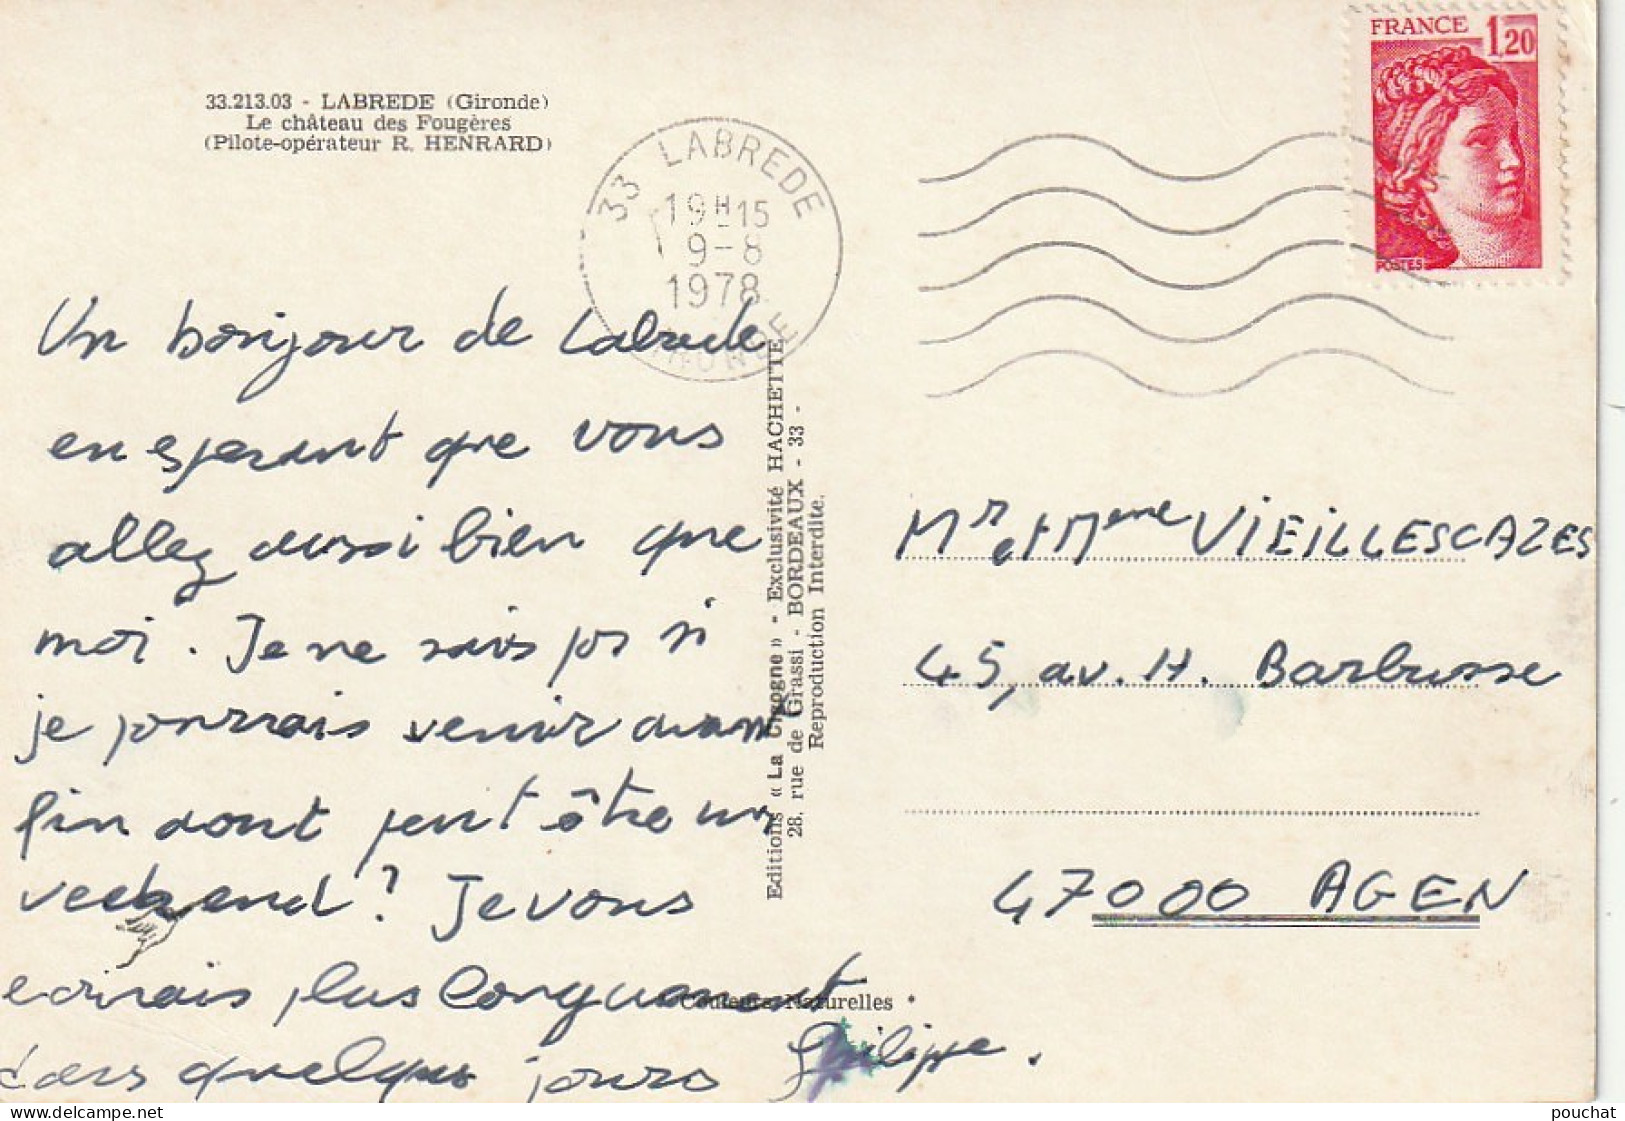 33.213.03 - LABREDE (Gironde)
Le château des Fougères
(Pilote-opérateur R. HENRARD)
33 LABREDE
19H15
9-8
1978
GIRONDE
FRANCE 1,20
POSTES
Un bonjour de Labrede
en esperant que vous
allez aussi bien que
moi. Je ne sais ps si
je pourrais venir avant
fin dont peut être un
veekend ? Je vous
ecrirais plus longuement
dans quelques jours Philippe.
Editions « La Cigogne » - Exclusivité HACHETTE
28, rue de Grassi - BORDEAUX - 33 -
Reproduction Interdite.
Couleurs Naturelles *
Mr et Meme VIEILLESCAZES
45, av. H. Barbusse
47000 AGEN
pouchat